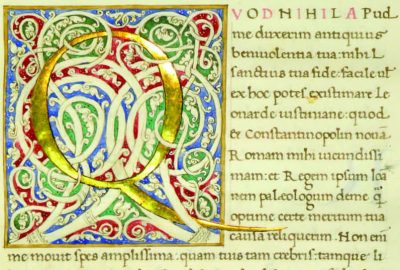 Q VOD NIHIL APud
me duxerim antiquius
beniuolentia tua: nihil
sanctius tua fide: facile ul
ex hoc potes existimare Le
onarde iustiniane: quod
et Constantinopolin nouā
Romam mihi iucundissi
mam: et Regem ipsum Ioan
nem paleologum deme q
optime certe meritum tua
causa reliquerim. Non eni
me mouit spes amplissima: quam tuis tam crebris: tamque li